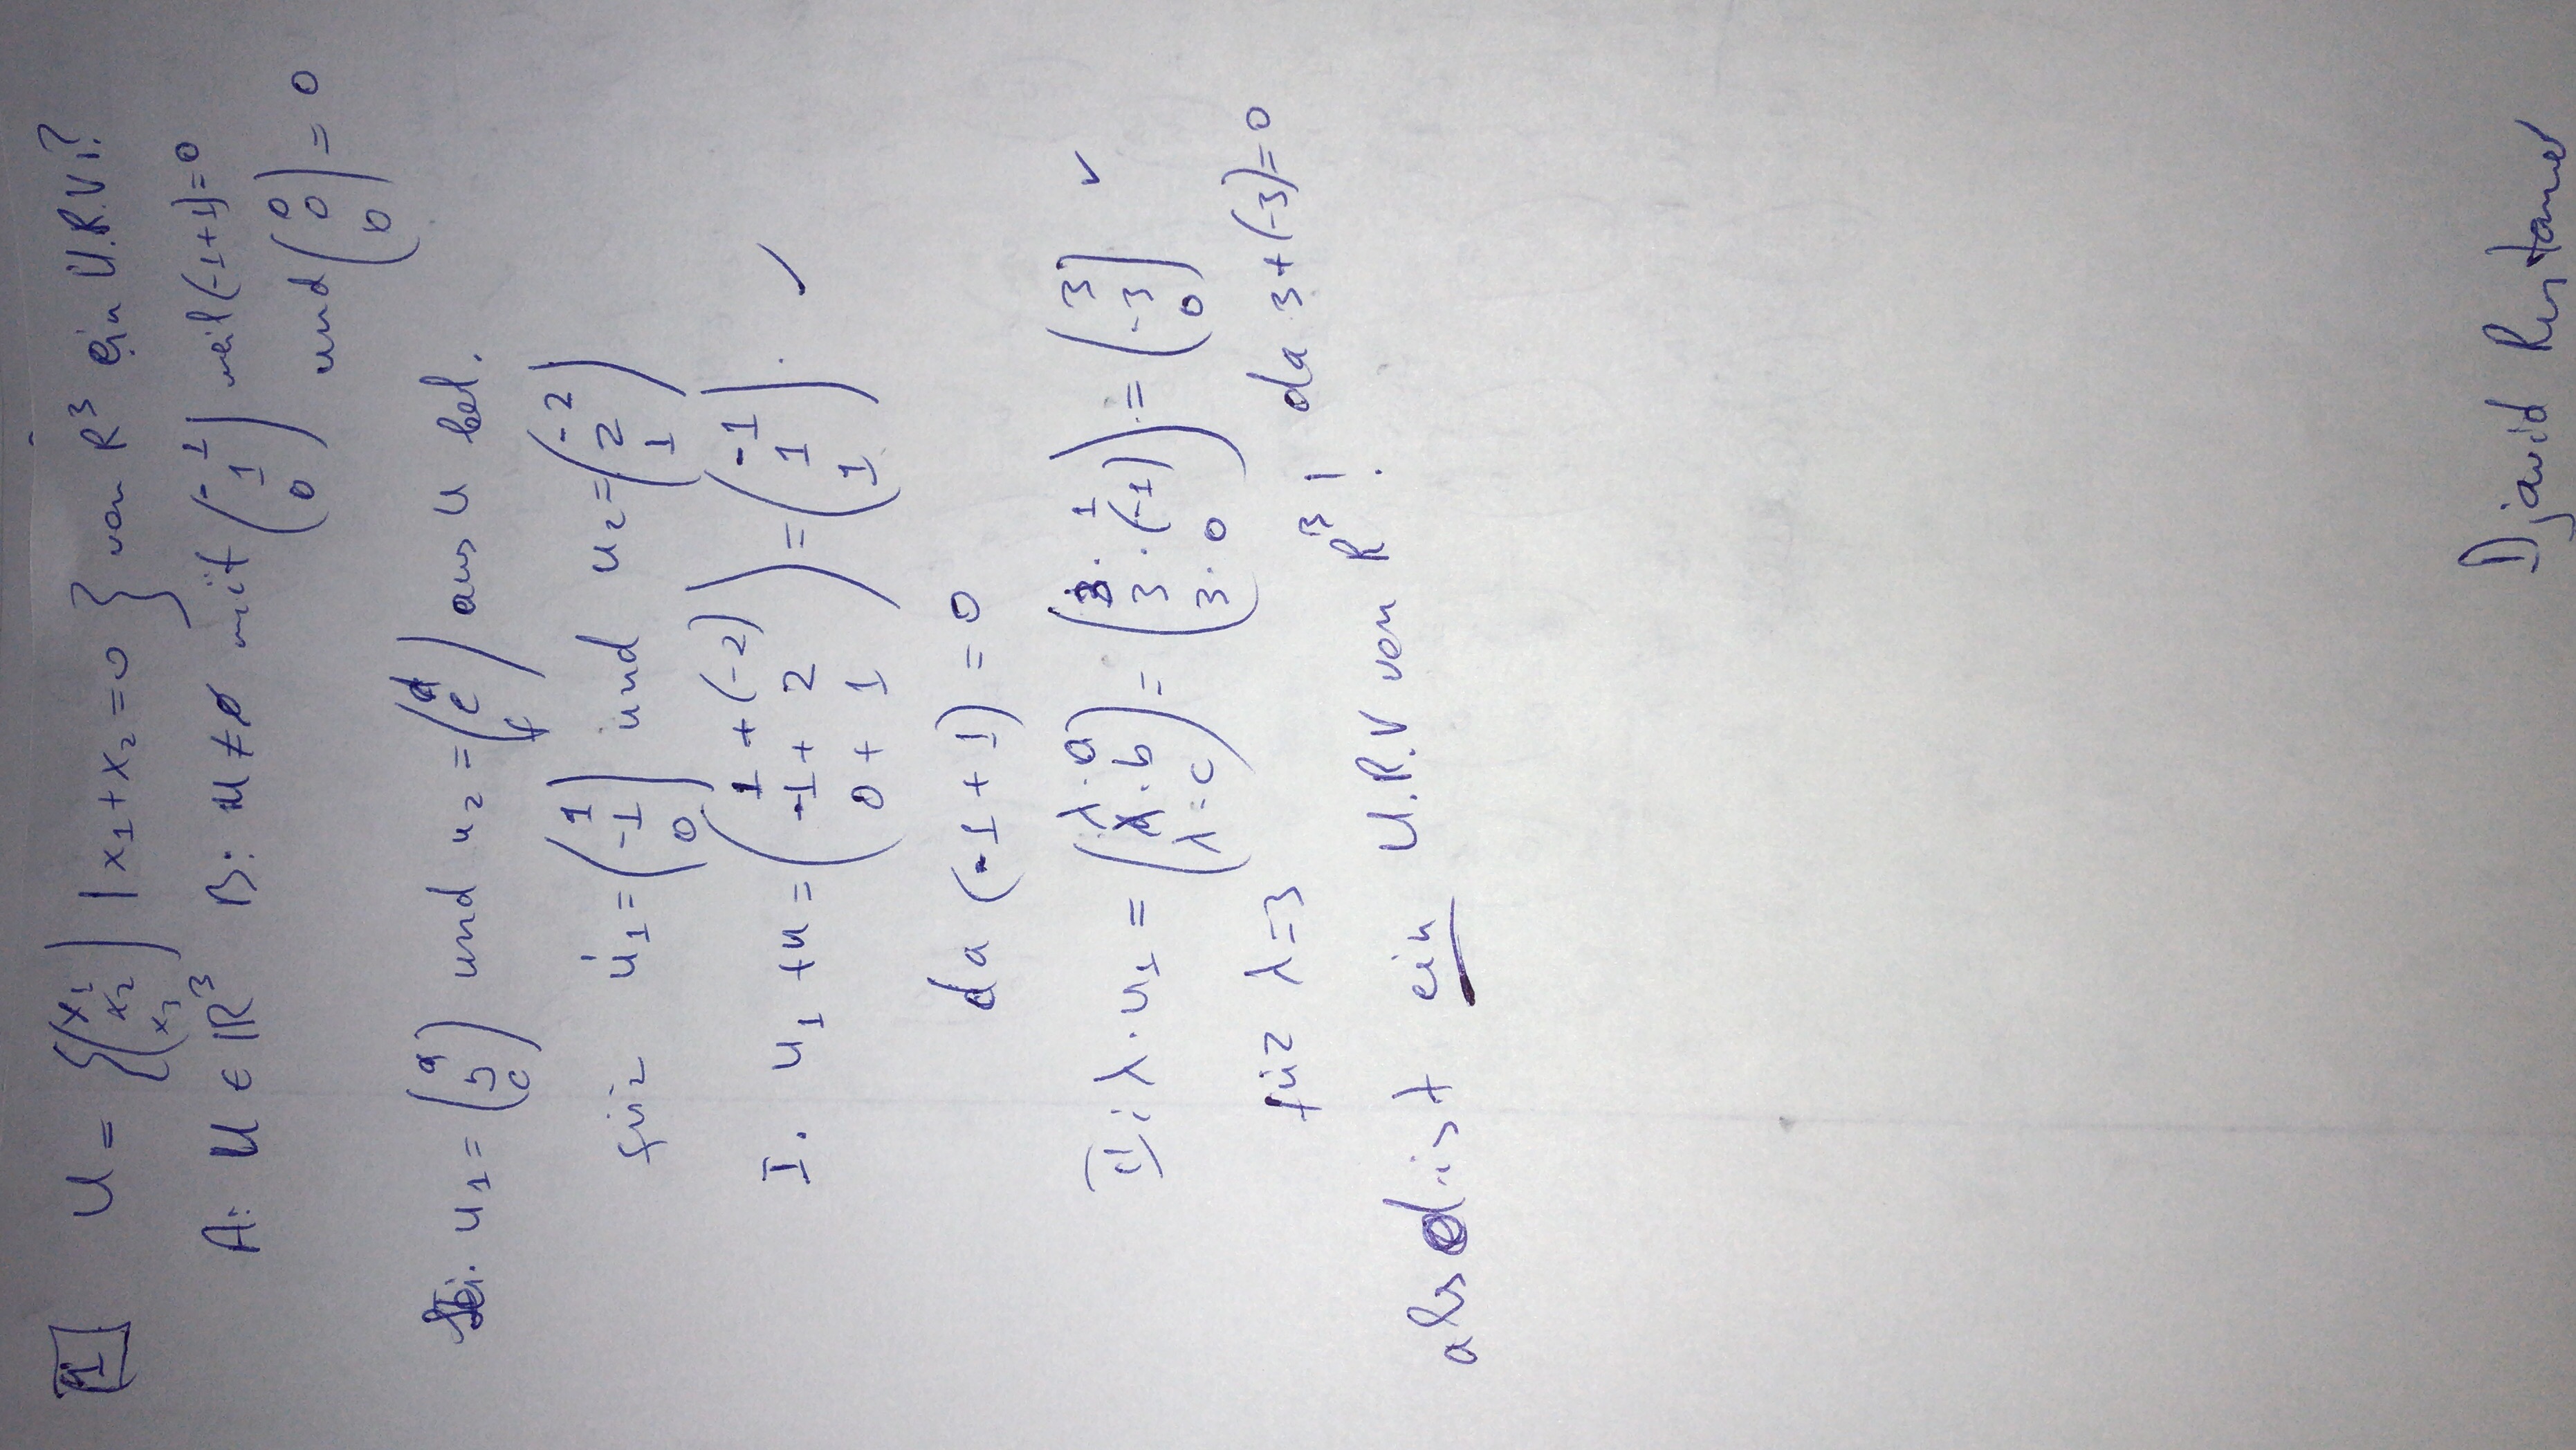 1 U = {(x₁ x₂ x₃) | x₁+x₂=0} von R³ ein U.R.V.?
A: U ∈ ℝ³ B: U ≠ ∅ mit (-1 1 0) weil (-1+1)=0
und (0 0 0) = 0
Sei. u₁ = (a b c) und u₂ = (d e f) aus U bel.
für u₁ = (1 -1 0) und u₂ = (-2 2 1)
I. u₁ + u = (1+(-2) -1+2 0+1) = (-1 1 1). ✓
da (-1+1) = 0
II: λ·u₁ = (λ·a λ·b λ·c) = (3·1 3·(-1) 3·0) = (3 -3 0) ✓
für λ=3 da 3+(-3)=0
also ist ein U.R.V von R³!
Djavid